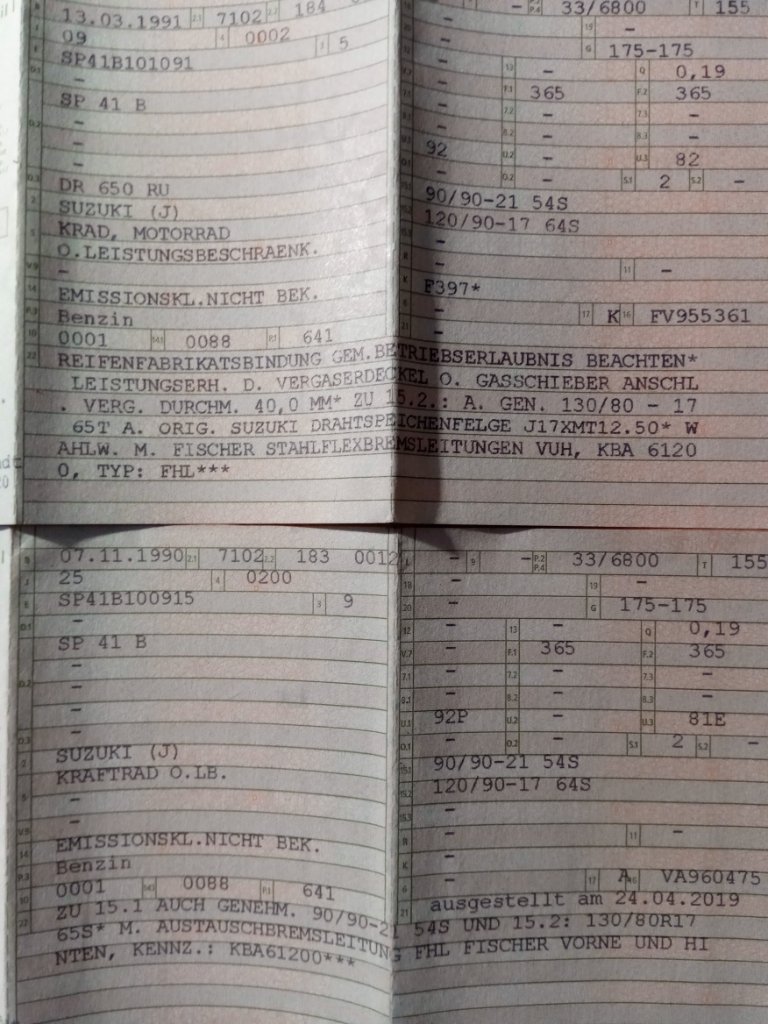 13.03.1991 2.1 7102 2.2 184 P.2 P.4 33/6800 T 155
09 4 0002 19 -
SP41B101091 3 5 G 175-175
- 13 - Q 0,19
SP 41 B F.1 365 F.2 365
- 7.2 - 7.3 -
- 8.2 - 8.3 -
- 92 U.2 - U.3 82
D.3 DR 650 RU O.2 - S.1 2 S.2 -
2 SUZUKI (J) 90/90-21 54S
5 KRAD, MOTORRAD 120/90-17 64S
O.LEISTUNGSBESCHRAENK. -
V.9 - R - 11 -
14 EMISSIONSKL.NICHT BEK. K F397*
P.3 Benzin 6 - 17 K 16 FV955361
10 0001 14.1 0088 P.1 641 21 -
22 REIFENFABRIKATSBINDUNG GEM.BETRIEBSERLAUBNIS BEACHTEN*
LEISTUNGSERH. D. VERGASERDECKEL O. GASSCHIEBER ANSCHL
. VERG. DURCHM. 40,0 MM* ZU 15.2.: A. GEN. 130/80 - 17
65T A. ORIG. SUZUKI DRAHTSPEICHENFELGE J17XMT12.50* W
AHLW. M. FISCHER STAHLFLEXBREMSLEITUNGEN VUH, KBA 6120
0, TYP: FHL***
B 07.11.1990 2.1 7102 2.2 183 0012 L - 9 - P.2 P.4 33/6800 T 155
J 25 4 0200 18 - 19 -
E SP41B100915 3 9 20 - G 175-175
D.1 - 12 - 13 - Q 0,19
SP 41 B V.7 - F.1 365 F.2 365
- 7.1 - 7.2 - 7.3 -
D.2 - 8.1 - 8.2 - 8.3 -
- U.1 92P U.2 - U.3 81E
D.3 - O.1 - O.2 - S.1 2 S.2 -
2 SUZUKI (J) 15.1 90/90-21 54S
KRAFTRAD O.LB. 15.2 120/90-17 64S
5 - 15.3 -
V.9 - R - 11 -
14 EMISSIONSKL.NICHT BEK. K -
P.3 Benzin 6 - 17 A 16 VA960475
10 0001 14.1 0088 P.1 641 21 ausgestellt am 24.04.2019
22 ZU 15.1 AUCH GENEHM. 90/90-21 54S UND 15.2: 130/80R17
65S* M. AUSTAUSCHBREMSLEITUNG FHL FISCHER VORNE UND HI
NTEN, KENNZ.: KBA61200***